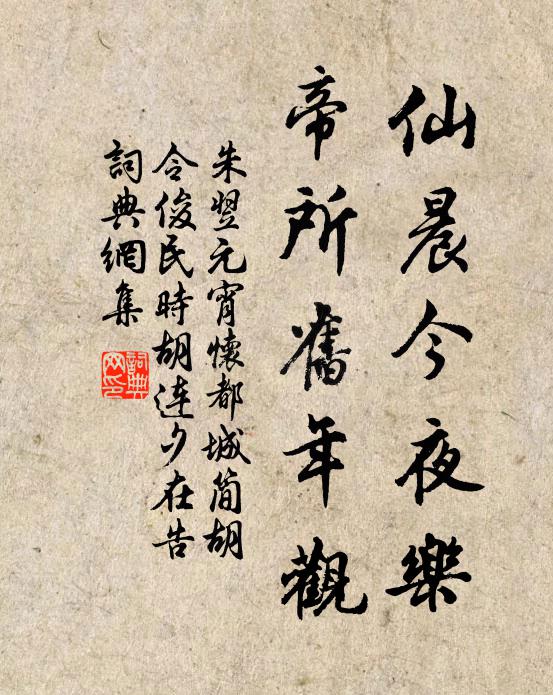 仙晨今夜樂
帝所舊年觀
朱翌元宵懷都城簡胡
令俊民時胡連夕在告
詞典網集
詞典網印